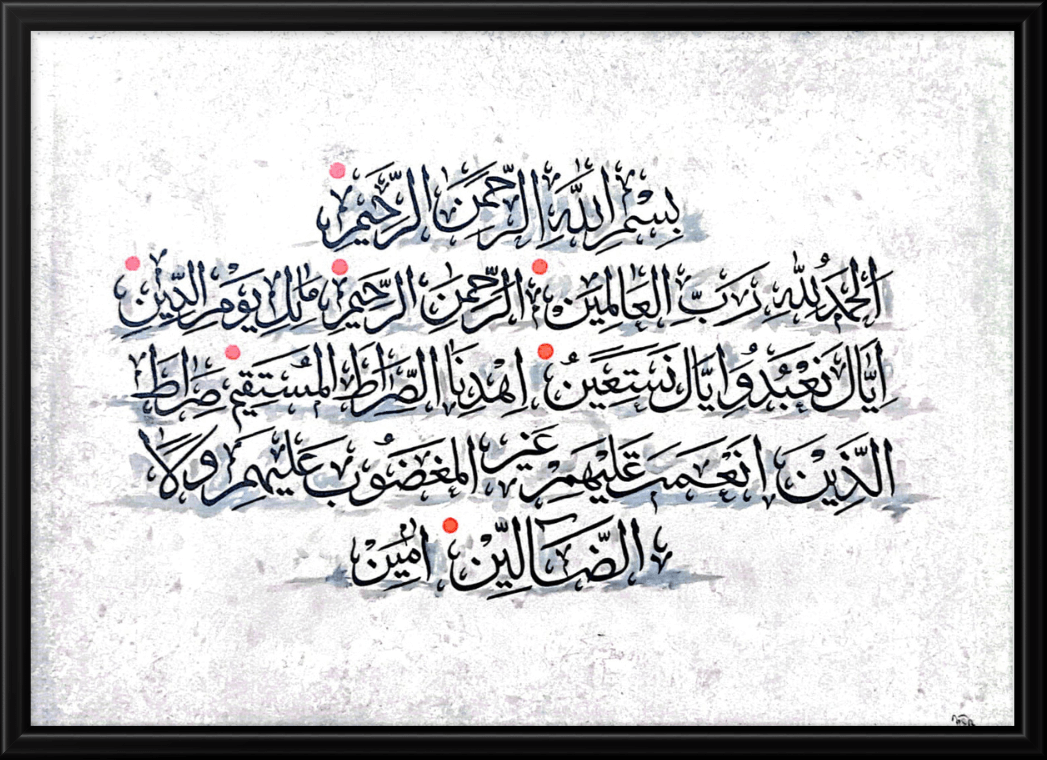 بِسْمِ اللهِ الرَّحْمٰنِ الرَّحِيْمِ
اَلْحَمْدُ لِلّٰهِ رَبِّ الْعَالَمِيْنَ الرَّحْمٰنِ الرَّحِيْمِ مٰلِكِ يَوْمِ الدِّيْنِ
اِيَّاكَ نَعْبُدُ وَاِيَّاكَ نَسْتَعِيْنُ اِهْدِنَا الصِّرَاطَ الْمُسْتَقِيْمَ صِرَاطَ
الَّذِيْنَ اَنْعَمْتَ عَلَيْهِمْ غَيْرِ الْمَغْضُوْبِ عَلَيْهِمْ وَلَا
الضَّآلِّيْنَ اٰمِيْن